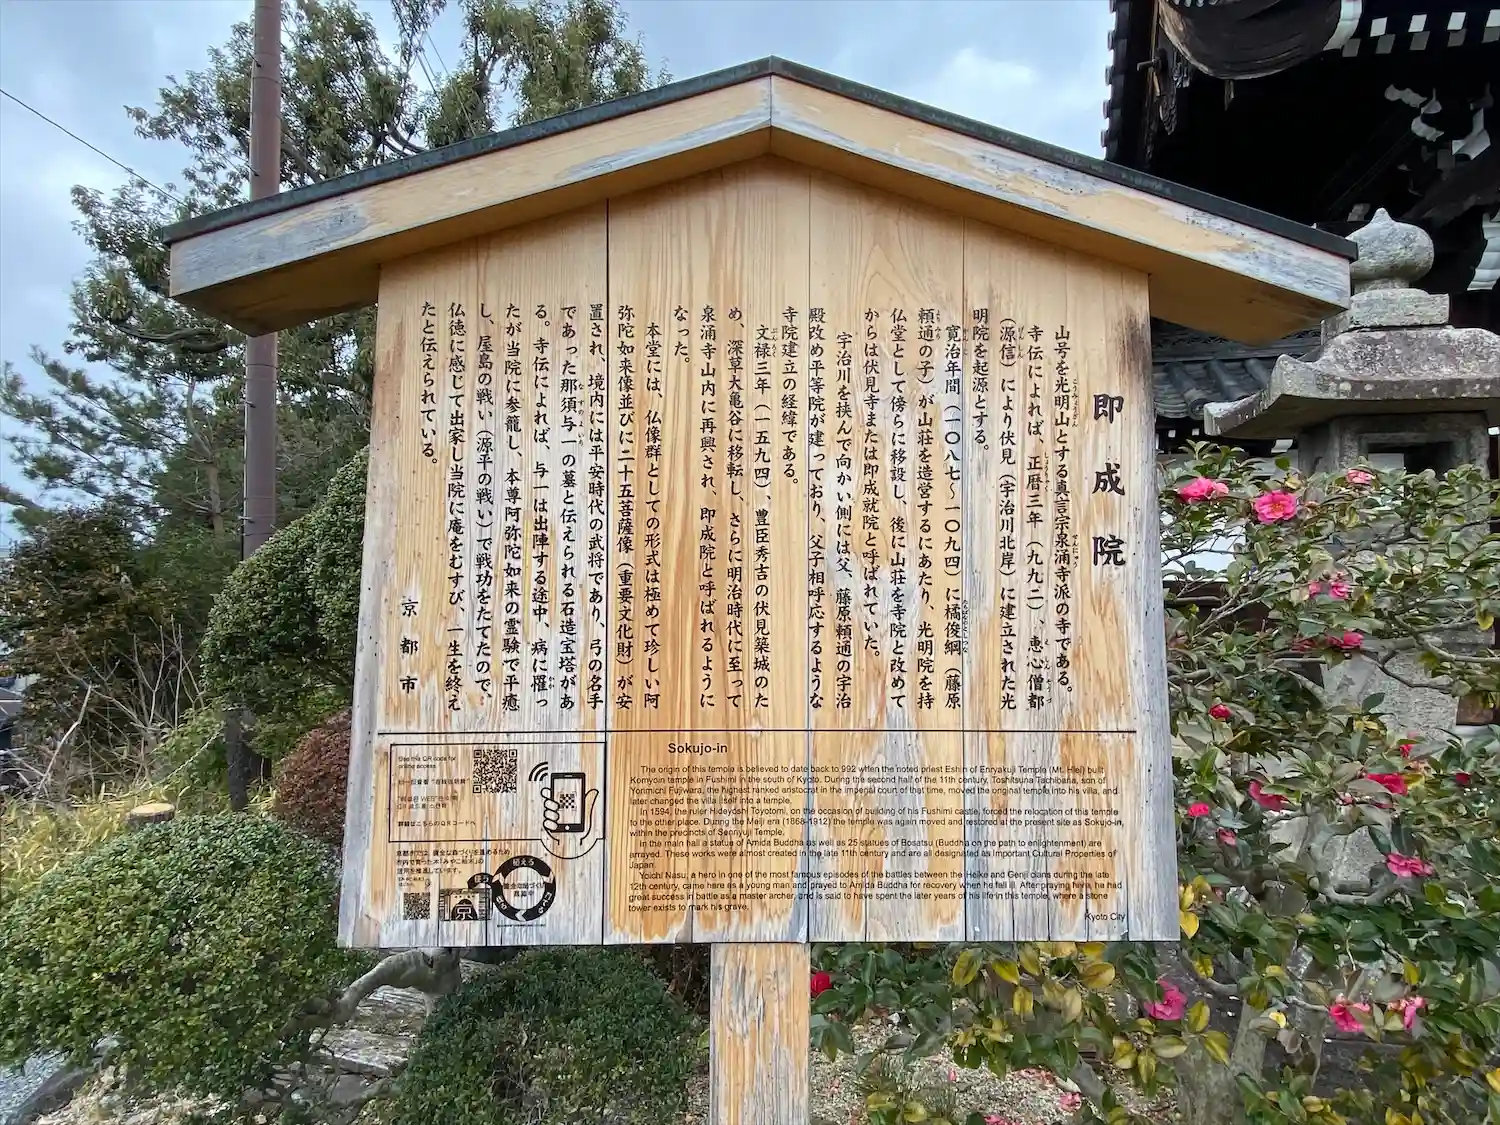 即成院
山号を光明山とする真言宗泉涌寺派の寺である。
寺伝によれば、正暦三年（九九二）、恵心僧都
（源信）により伏見（宇治川北岸）に建立された光
明院を起源とする。
寛治年間（一〇八七～一〇九四）に橘俊綱（藤原
頼通の子）が山荘を造営するにあたり、光明院を持
仏堂として傍らに移設し、後に山荘を寺院と改めて
からは伏見寺または即成就院と呼ばれていた。
宇治川を挟んで向かい側には父、藤原頼通の宇治
殿改め平等院が建っており、父子相呼応するような
寺院建立の経緯である。
文禄三年（一五九四）、豊臣秀吉の伏見築城のた
め、深草大亀谷に移転し、さらに明治時代に至って
泉涌寺山内に再興され、即成院と呼ばれるように
なった。
本堂には、仏像群としての形式は極めて珍しい阿
弥陀如来像並びに二十五菩薩像（重要文化財）が安
置され、境内には平安時代の武将であり、弓の名手
であった那須与一の墓と伝えられる石造宝塔があ
る。寺伝によれば、与一は出陣する途中、病に罹っ
たが当院に参籠し、本尊阿弥陀如来の霊験で平癒
し、屋島の戦い（源平の戦い）で戦功をたてたので、
仏徳に感じて出家し当院に庵をむすび、一生を終え
たと伝えられている。
京都市
Sokujo-in
The origin of this temple is believed to date back to 992 when the noted priest Eshin of Enryakuji Temple (Mt. Hiei) built
Komyoin temple in Fushimi in the south of Kyoto. During the second half of the 11th century, Toshitsuna Tachibana, son of
Yorimichi Fujiwara, the highest ranked aristocrat in the imperial court of that time, moved the original temple into his villa, and
later changed the villa itself into a temple.
In 1594, the ruler Hideyoshi Toyotomi, on the occasion of building of his Fushimi castle, forced the relocation of this temple
to the other place. During the Meiji era (1868-1912) the temple was again moved and restored at the present site as Sokujo-in,
within the precincts of Sennyuji Temple.
In the main hall a statue of Amida Buddha as well as 25 statues of Bosatsu (Buddha on the path to enlightenment) are
arrayed. These works were almost created in the late 11th century and are all designated as Important Cultural Properties of
Japan.
Yoichi Nasu, a hero in one of the most famous episodes of the battles between the Heike and Genji clans during the late
12th century, came here as a young man and prayed to Amida Buddha for recovery when he fell ill. After praying here, he had
great success in battle as a master archer, and is said to have spent the later years of his life in this temple, where a stone
tower exists to mark his grave.
Kyoto City
See this QR code for
online access
詳細はこちらのQRコードへ
京都市では、健全な森づくりを進めるため、
市内で育った木「みやこ杣木」の
活用を推進しています。
植える
京